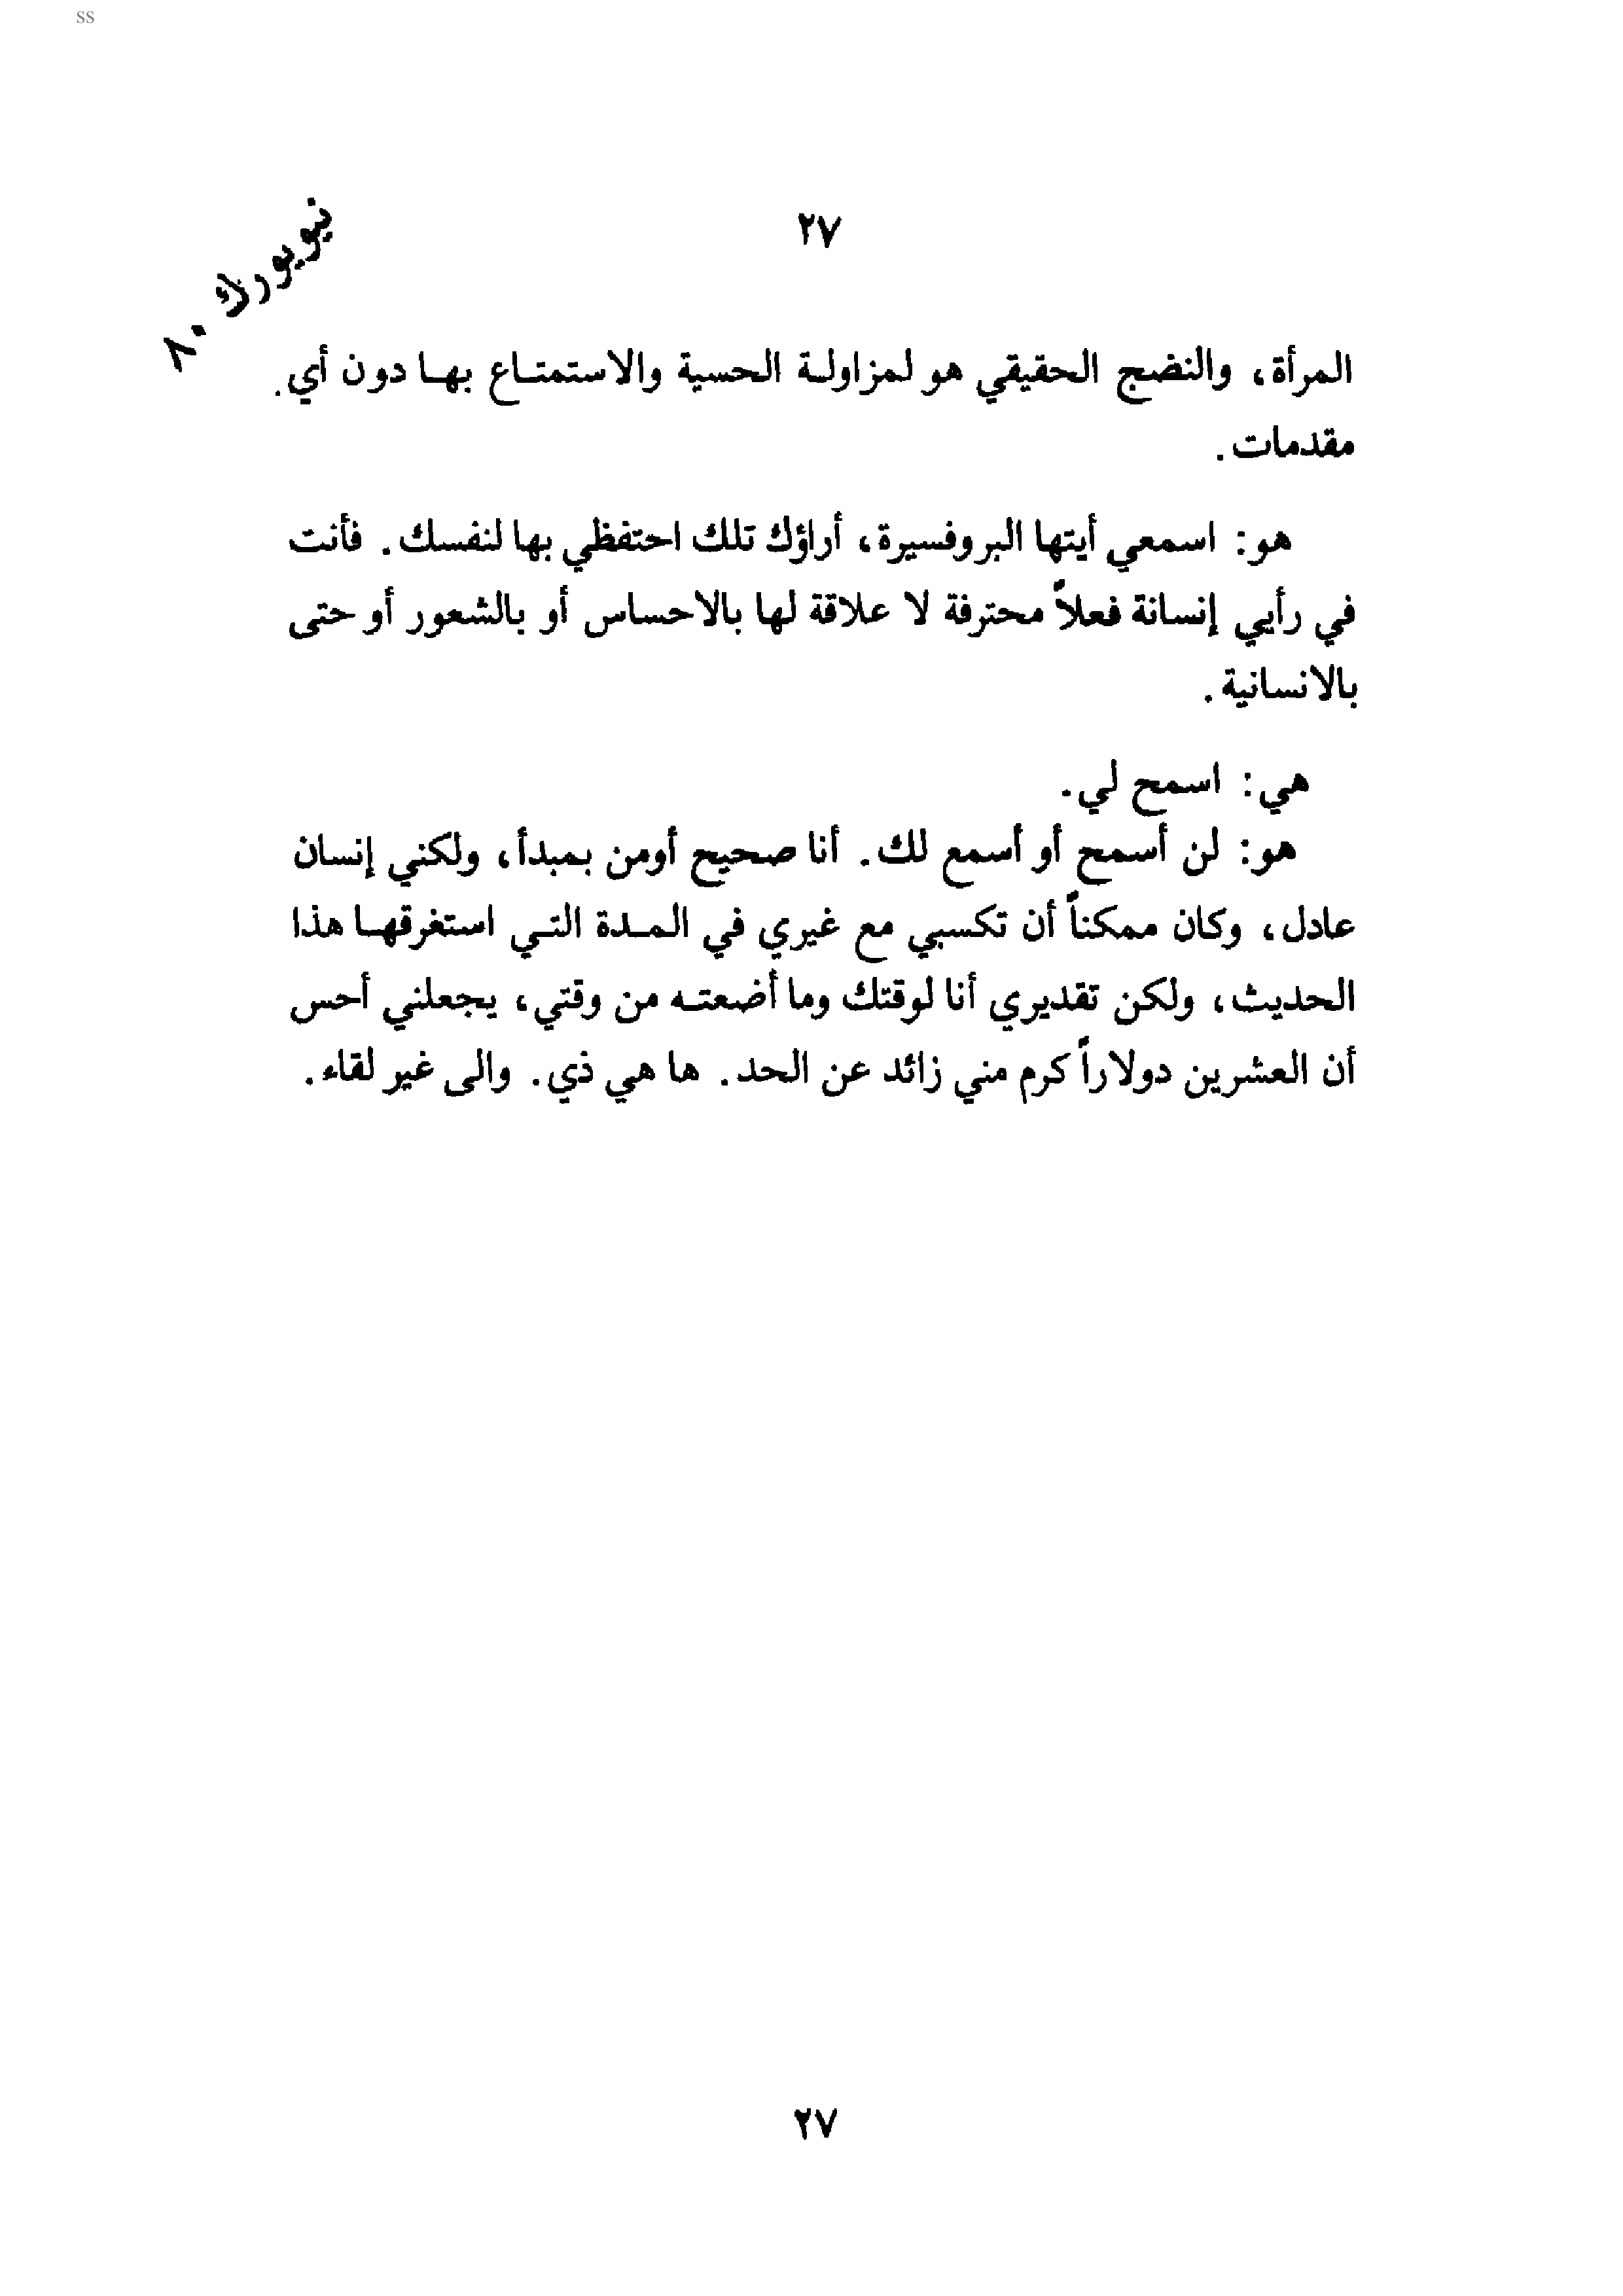 ss
٢٧
نيويورك ٨٠
المرأة، والنضج الحقيقي هو لمزاولة الحسية والاستمتاع بها دون أي.
مقدمات.
هو: اسمعي أيتها البروفسيرة، أراؤك تلك احتفظي بها لنفسك. فأنت
في رأيي إنسانة فعلاً محترفة لا علاقة لها بالاحساس أو بالشعور أو حتى
بالانسانية.
هي: اسمح لي.
هو: لن أسمح أو أسمع لك. أنا صحيح أومن بمبدأ، ولكني إنسان
عادل، وكان ممكناً أن تكسبي مع غيري في المدة التي استغرقها هذا
الحديث، ولكن تقديري أنا لوقتك وما أضعته من وقتي، يجعلني أحس
أن العشرين دولاراً كرم مني زائد عن الحد. ها هي ذي. والى غير لقاء.
٢٧